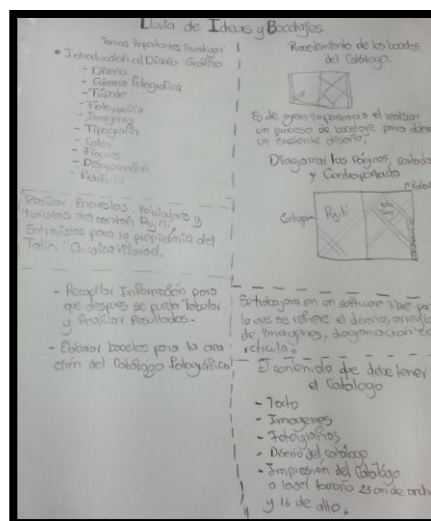 Lluvia de Ideas y Bocetajes
Temas importantes Investigar
• Introducción al Diseño Gráfico
- Diseño
- Cámara fotográfica
- Trípode
- Fotografía
- Imagenes
- Tipografía
- Color
- Planos
- Diagramación
- Retícula
Realizar Encuestas, Pobladores y
turistas del cantón Pujilí,
Entrevistas para la propietaria del
Taller "Chicaiza Villarroel,
- Recopilar Información para
que después se pueda Tabular
y Analizar Resultados.
- Elaborar bocetos para la crea
ción del Catálogo fotográfico
Procedimiento de los bocetos
del Catálogo.
Es de gran importancia el realizar
un proceso de bocetaje para
un excelente diseño.
Diagramar las Páginas, portada
y Contraportada
Pujilí
Se trabajara en un software libre
lo que se refiere al diseño,
de imagenes, diagramación
retícula.
El contenido que debe tener
el Catálogo
- Texto
- Imagenes
- Fotografías
- Diseño del catálogo
- Impresión del Catálogo
a laser tamaño 23 cm de
y 16 de alto.